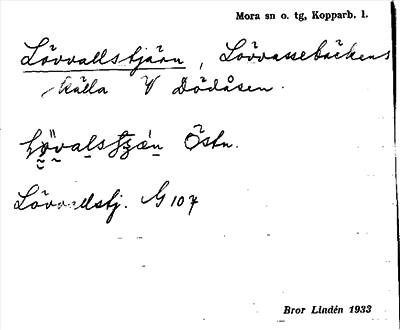 Mora sn o. tg, Kopparb. l.
Lövvallstjärn, Lövvassebäckens
källa V Dödåsen.
Östn.
Lövvallstj. G 107
Bror Lindén 1933